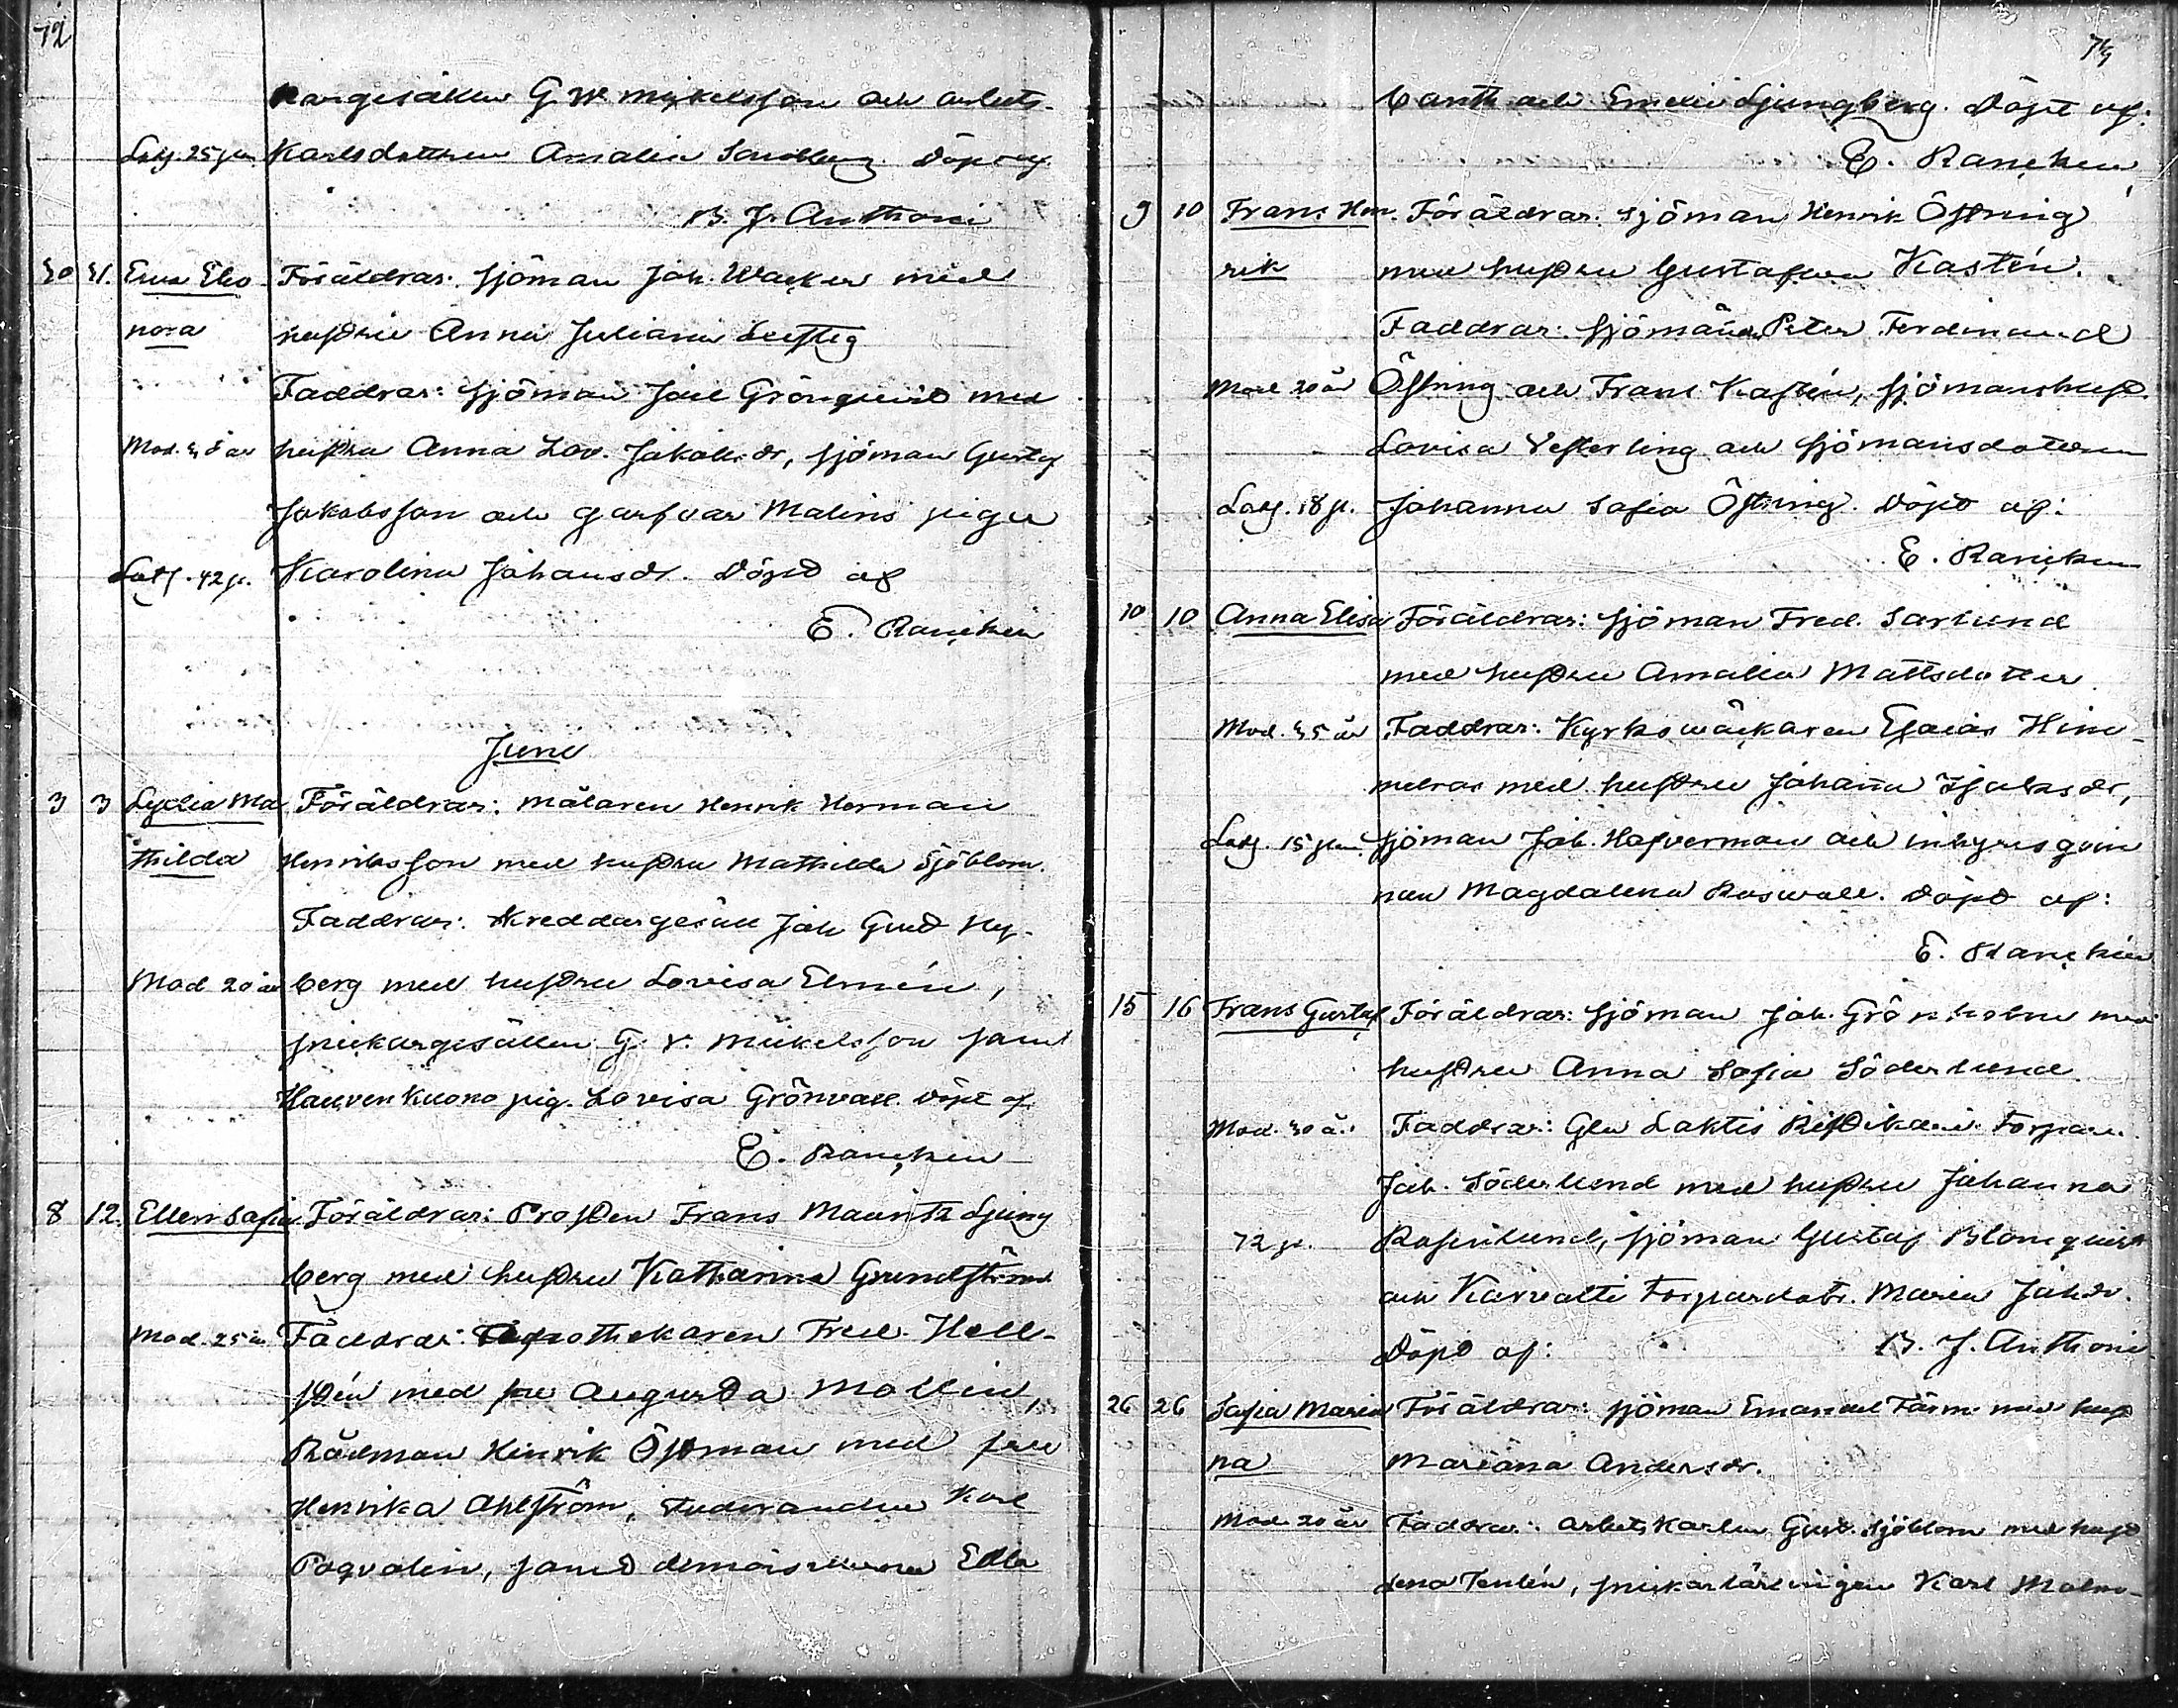 72
kargesällen G. W. Mickelsson och arbets-
Karlsdottren Amalia Sandberg Döpt af
B. J. Anthoni
30 31. Eva Eleo- Föräldrar: sjöman Joh. Wacker med
nora hustru Anna Juliana Leistig
Faddrar: sjöman Joel Grönqvist med
Mod. 35 år hustru Anna Lov. Jakobsdr, sjöman Gustaf
Jakobsson och garfvar Malins piga
Karolina Johansdr. Döpt af
E. Rancken
Juni
3 3 Lydia Ma- Föräldrar: målaren Henrik Herman
thilda Henriksson med hustru Mathilda Sjöblom.
Faddrar: Skreddargesäll Joh Gust Ny-
Mod 20 år berg med hustru Lovisa Elmén,
snickargesällen G. V. Mickelsson samt
Hauvenkuono pig. Lovisa Grönvall. Döpt af
E. Rancken
8 12. Ellen Sofia Föräldrar: Prosten Frans Mauritz Ljung-
berg med hustru Katharina Grundström
Mod. 25 år Faddrar: Apothekaren Fred. Hell-
stén med fru Augusta Mollin,
Rådman Henrik Östman med fru
Henrika Ahlström, studeranden Karl
Poqvalin, samt demoisellerna Edla
73
Canth och Emelie Ljungberg. Döpt af:
E. Rancken
9 10 Frans Hen- Föräldrar: sjöman Henrik Östring
rik med hustru Gustafva Kastén.
Faddrar: sjömännen Peter Ferdinand
Mod 20 år Östring och Frans Kastén, sjömanshust.
Lovisa Vesterling och sjömansdottren
Johanna Sofia Östring. Döpt af:
E. Rancken
10 10 Anna Elisa Föräldrar: sjöman Fred. Sarlund
med hustru Amalia Mattsdotter.
Mod. 35 år Faddrar: Kyrkowäckaren Esaias Him-
melros med hustru Johanna Isaksdr,
sjöman Joh. Hafverman och inhyresqvin
nan Magdalena Roswall. Döpt af:
E. Rancken
15 16 Frans Gustaf Föräldrar: sjöman Joh. Grönholm med
hustru Anna Sofia Söderlund.
Mod. 30 år Faddrar: Torparen
Joh. Söderlund med hustru Johanna
Rosenlund, sjöman Gustaf Blomqvist
och Karvatti Torpardotr. Maria Johdr.
Döpt af: B. J. Anthoni
26 26 Sofia Maria- Föräldrar: sjöman Emanuel Färm med hust
na Mariana Andersdr.
Mod. 20 år Faddrar: arbetskarlen Gust. Sjöblom med hust
Lena Tenlén, snickarlärlingen Karl Malm-